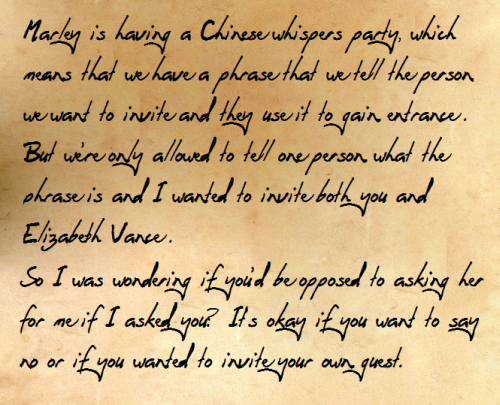 Marley is having a Chinese whispers party, which
means that we have a phrase that we tell the person
we want to invite and they use it to gain entrance.
But we're only allowed to tell one person what the
phrase is and I wanted to invite both you and
Elizabeth Vance.
So I was wondering if you'd be opposed to asking her
for me if I asked you? It's okay if you want to say
no or if you wanted to invite your own guest.